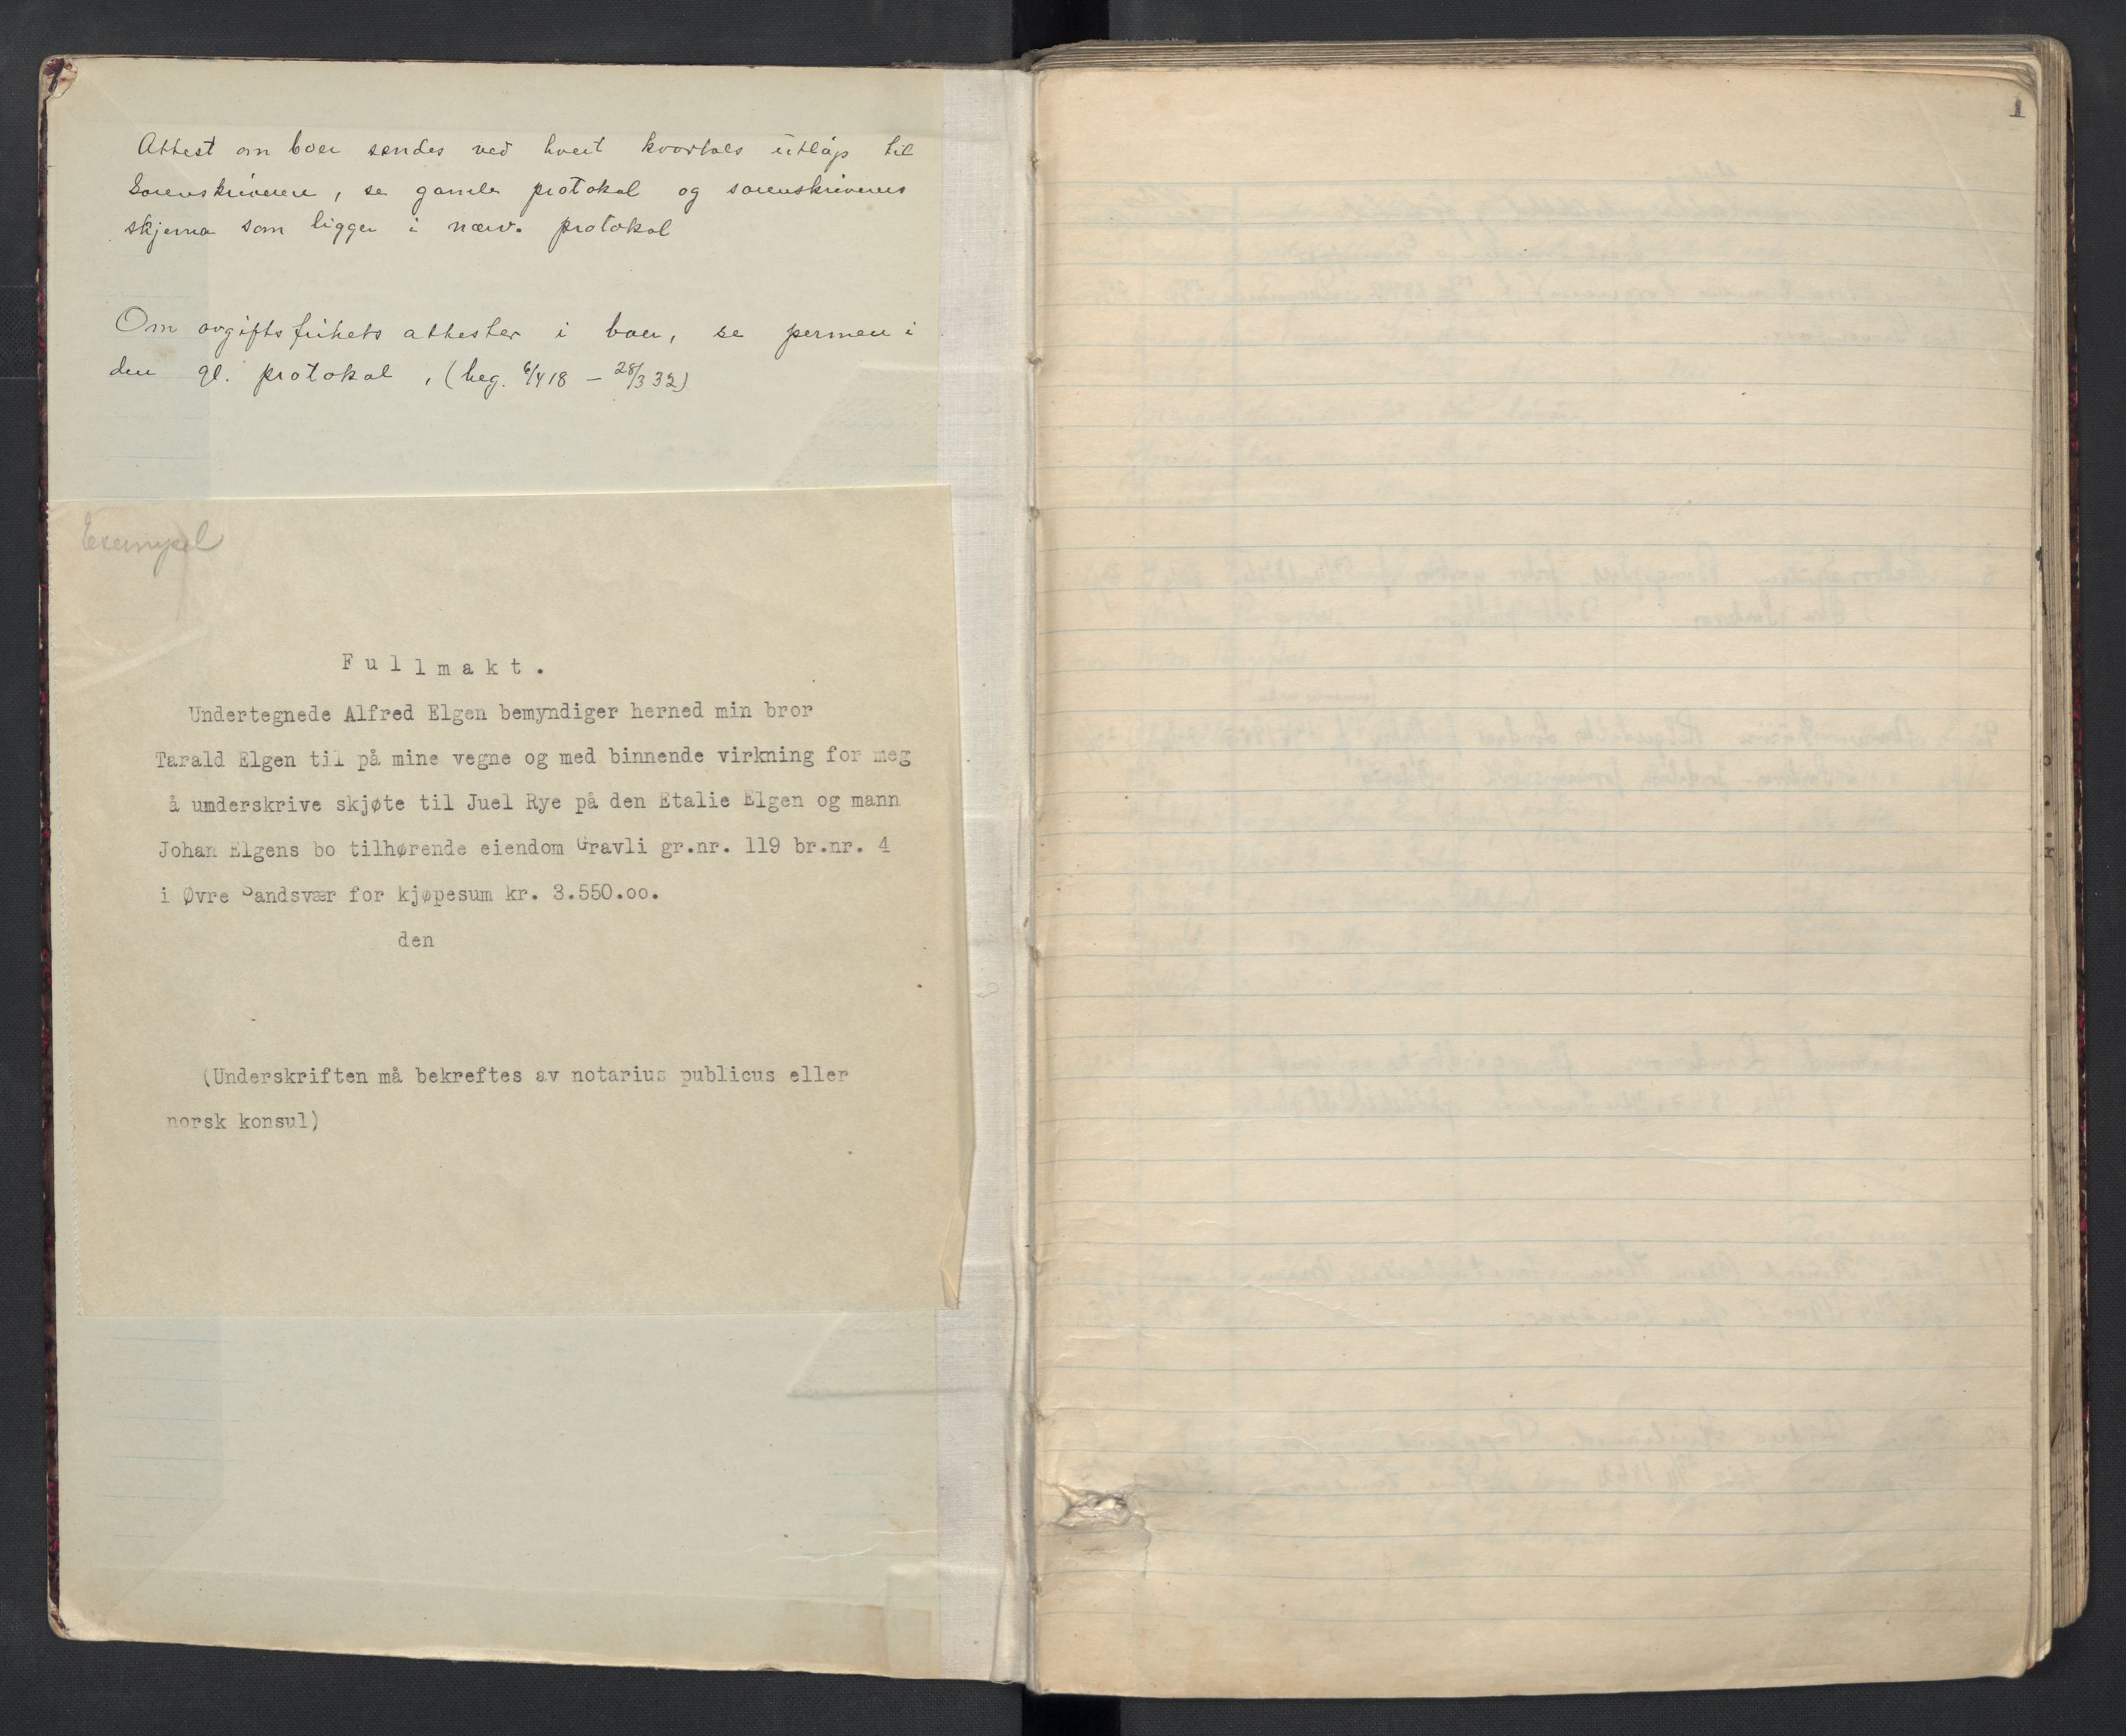 Attest om boer sendes ved hvert kvartals utløp til
Sorenskriveren, se gamle protokol og sorenskriverens
skjema som ligger i nærv. protokol
Om avgiftsfrihets attester i boer, se permen i
den gl. protokol, (beg. 6/4 18 – 28/3 32)
Exempel
Fullmakt.
Undertegnede Alfred Elgen bemyndiger herned min bror
Tarald Elgen til på mine vegne og med binnende virkning for meg
å umderskrive skjøte til Juel Rye på den Etalie Elgen og mann
Johan Elgens bo tilhørende eiendom Gravli gr.nr. 119 br.nr. 4
i Øvre Sandsvær for kjøpesum kr. 3.550.oo.
den
(Underskriften må bekreftes av notarius publicus eller
norsk konsul)
1